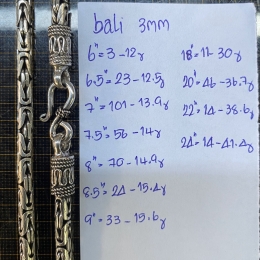 bali 3mm
6" = 3 - 12g
6.5" = 23 - 12.5g
7" = 101 - 13.9g
7.5" = 56 - 14g
8" = 70 - 14.9g
8.5" = 21 - 15.4g
9" = 33 - 15.6g
18" = 11 - 30g
20" = 46 - 36.7g
22" = 14 - 38.6g
24" = 14 - 41.4g